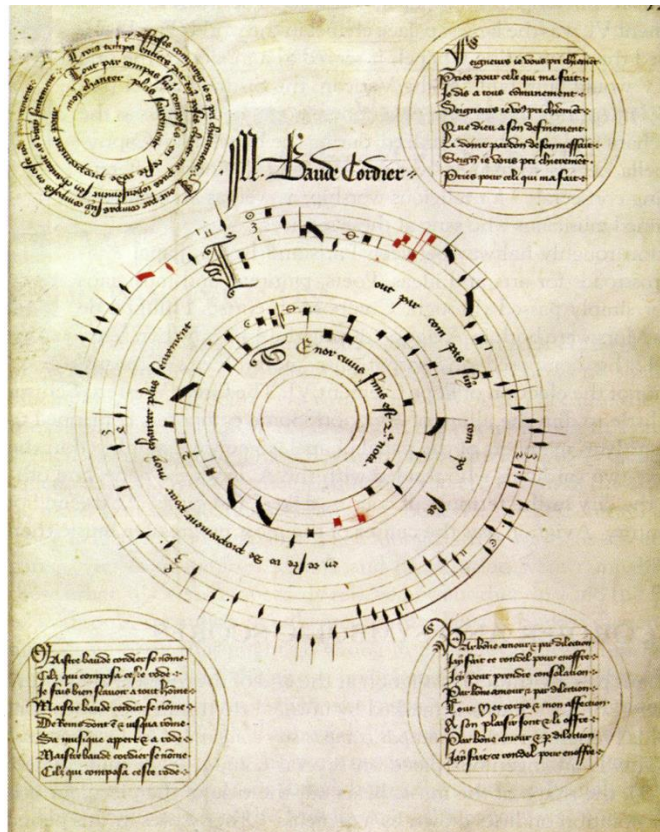 Trois temps entiers par toy posés
Tout par compas suy composés
en ceste rode proprement
pour moy chanter plus seurement
Seigneurs ie vous pri chieremēt
Pries pour celi qui ma fait
Je dis a tous cōmunement
Seigneurs ie voꝰ pri chieremēt
Que dieu a son definement
Li doint pardon de son meffait
Seigrs ie vous pri chierement
Pries pour celi qui ma fait
M. Baude Cordier
Tout par compas suy com po ses
en ceste rode proprement pour moy chanter plus seurement
Tenor cuius finis est 2ª nota.
Maistre baude cordier se nōme
Cilz qui composa ceste rode
Je fais bien scavoir a tout hōme
Maistre baude cordier se nōme
De Reins dont est ⁊ iusqua rome
Sa musique appert ⁊ a rode
Maistre baude cordier se nōme
Cilz qui composa ceste rode
Par bōne amour ⁊ par dilection
Jay fait ce rondel pour en offre
Icy peut prendre consolation
Par bōne amour ⁊ par dilection
Tout ♡ et corps ⁊ mon affection
A son plaisir sont ⁊ li offre
Par bōne amour ⁊ p dilection
Jay fait ce rondel pour en offre